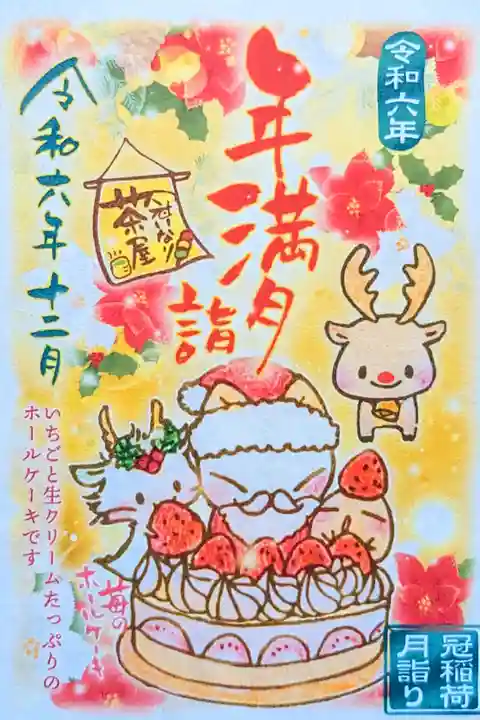 令和六年
年満月詣
いなり
茶屋
令和六年十二月
いちごと生クリームたっぷりの
ホールケーキです
苺の
ホールケーキ
冠稲荷
月詣り